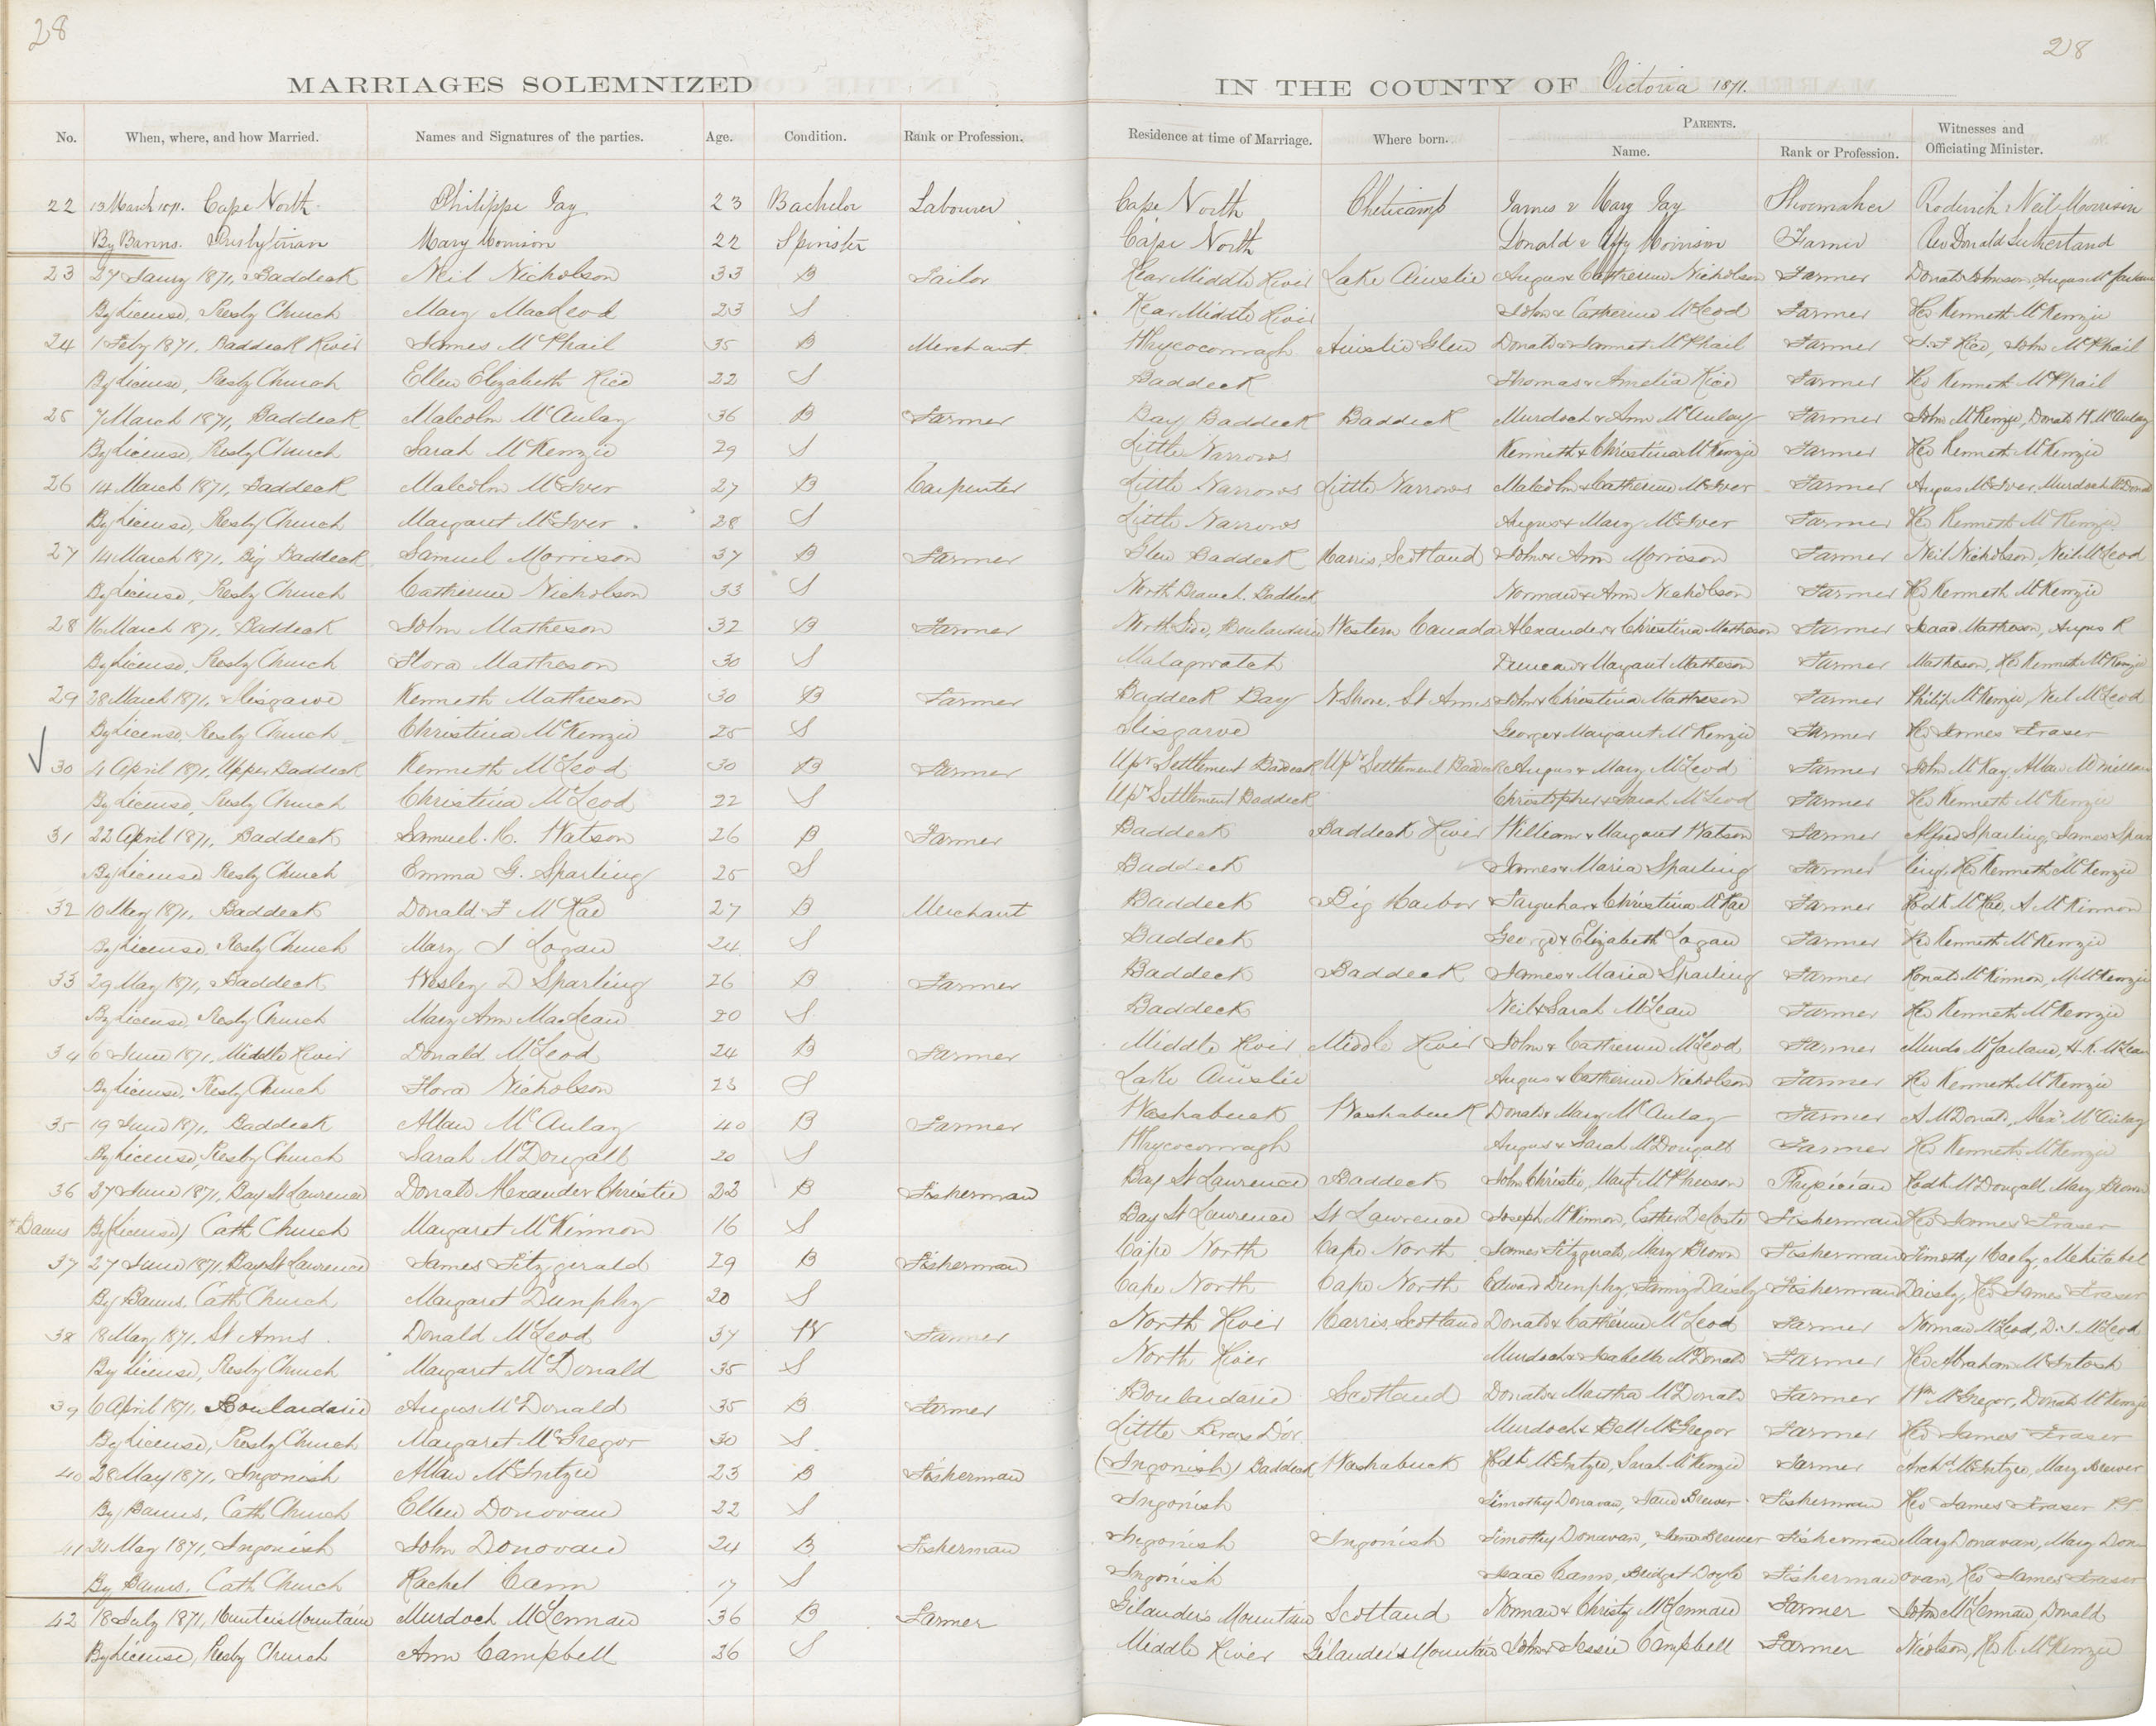 28
28
MARRIAGES SOLEMNIZED IN THE COUNTY OF Victoria 1871.
No. When, where, and how Married. Names and Signatures of the parties. Age. Condition. Rank or Profession. Residence at time of Marriage. Where born. PARENTS. Name. Rank or Profession. Witnesses and Officiating Minister.
22 13 March 1871. Cape North Philippe Jay 23 Bachelor Labourer Cape North Cheticamp James & Mary Jay Shoemaker Roderick Neil Morrison
By Banns. Presbyterian Mary Morrison 22 Spinster Cape North Donald & Effy Morrison Farmer Rev Donald Sutherland
23 27 Jany 1871, Baddeck Neil Nicholson 33 B Tailor Rear Middle River Lake Ainslie Angus & Catherine Nicholson Farmer Donald Johnson, Angus McFarlane
By License, Presby Church Mary MacLeod 23 S Rear Middle River John & Catherine McLeod Farmer Rev Kenneth McKenzie
24 1 Feby 1871, Baddeck River James McPhail 35 B Merchant. Whycocomagh Ainslie Glen Donald & Jannet McPhail Farmer T. F Rice, John McPhail
By License, Presby Church Ellen Elizabeth Rice 22 S Baddeck Thomas & Amelia Rice Farmer Rev Kenneth McPhail
25 7 March 1871, Baddeck Malcolm McAulay 36 B Farmer Bay Baddeck Baddeck Murdoch & Ann McAulay Farmer John McKenzie, Donald H. McAulay
By License, Presby Church Sarah McKenzie 29 S Little Narrows Kenneth & Christina McKenzie Farmer Rev Kenneth McKenzie
26 14 March 1871, Baddeck Malcolm McIver 27 B Carpenter Little Narrows Little Narrows Malcolm & Catherine McIver Farmer Angus McIver, Murdoch McDonald
By License, Presby Church Margaret McIver 28 S Little Narrows Angus & Mary McIver Farmer Rev Kenneth McKenzie
27 14 March 1871, Big Baddeck Samuel Morrison 37 B Farmer Glen Baddeck Harris, Scotland John & Ann Morrison Farmer Neil Nicholson, Neil McLeod
By License, Presby Church Catherine Nicholson 33 S North Branch. Baddeck Norman & Ann Nicholson Farmer Rev Kenneth McKenzie
28 16 March 1871, Baddeck John Matheson 32 B Farmer North Side, Boulardarie Western Canada Alexander & Christina Matheson Farmer Isaac Matheson, Angus R
By License, Presby Church Flora Matheson 30 S Malagwatch Duncan & Margaret Matheson Farmer Matheson, Rev Kenneth McKenzie
29 28 March 1871, Skisgarve Kenneth Matheson 30 B Farmer Baddeck Bay N. Shore, St Anns John & Christina Matheson Farmer Philip McKenzie, Neil McLeod
By License, Presby Church Christina McKenzie 25 S George & Margaret McKenzie Farmer Rev James Fraser
30 4 April 1871, Upper Baddeck Kenneth McLeod 30 B Farmer Upr Settlement Baddeck Upr Settlement Baddeck Angus & Mary McLeod Farmer John McKay, Allan McMillan
By License, Presby Church Christina McLeod 22 S Upr Settlement Baddeck Christopher & Sarah McLeod Farmer Rev Kenneth McKenzie
31 22 April 1871, Baddeck Samuel. H. Watson 26 B Farmer Baddeck Baddeck River William & Margaret Watson Farmer Alfred Sparling, James Spar
By License Presby Church Emma G. Sparling 25 S Baddeck James & Maria Sparling Farmer ling, Rev Kenneth McKenzie
32 10 May 1871, Baddeck Donald. F McRae 27 B Merchant Baddeck Big Harbor Farquhar & Christina McRae Farmer Rodk McRae, A McKinnon
By License, Presby Church Mary J Logan 24 S Baddeck George & Elizabeth Logan Farmer Rev Kenneth McKenzie
33 29 May 1871, Baddeck Wesley D Sparling 26 B Farmer Baddeck Baddeck James & Maria Sparling Farmer Ronald McKinnon, M McKenzie
By License, Presby Church Mary Ann MacLean 20 S Baddeck Neil & Sarah McLean Farmer Rev Kenneth McKenzie
34 6 June 1871, Middle River Donald McLeod 24 B Farmer Middle River Middle River John & Catherine McLeod Farmer Murdo McFarlane, H. K. McLean
By License, Presby Church Flora Nicholson 23 S Lake Ainslie Angus & Catherine Nicholson Farmer Rev Kenneth McKenzie
35 19 June 1871, Baddeck Allan McAulay 40 B Farmer Washabuck Washabuck Donald & Mary McAulay Farmer A McDonald, Alexr McAulay
By License, Presby Church Sarah McDougall 20 S Whycocomagh Angus & Sarah McDougall Farmer Rev Kenneth McKenzie
36 27 June 1871, Bay St Lawrence Donald Alexander Christie 22 B Fisherman Bay St Lawrence Baddeck John Christie, Margt McPherson Physician Rodk McDougall, Mary Brown
*Banns By (License) Cath Church Margaret McKinnon 16 S Bay St Lawrence St Lawrence Joseph McKinnon, Esther DeCoste Fisherman Rev James Fraser
37 27 June 1871, Bay St Lawrence James Fitzgerald 29 B Fisherman Cape North Cape North James Fitzgerald, Mary Brown Fisherman Timothy Haley, Mehitabel
By Banns, Cath Church Margaret Dunphy 20 S Cape North Cape North Edward Dunphy, Fanny Daisly Fisherman Daisly, Rev James Fraser
38 18 May 1871, St Anns. Donald McLeod 37 W Farmer North River Harris, Scotland Donald & Catherine McLeod Farmer Norman McLeod, D. J McLeod
By License, Presby Church Margaret McDonald 35 S North River Murdoch & Isabella McDonald Farmer Rev Abraham McIntosh
39 6 April 1871, Boulardarie Angus McDonald 35 B Farmer Boulardarie Scotland Donald & Martha McDonald Farmer Wm McGregor, Donald McKenzie
By License, Presby Church Margaret McGregor 30 S Little Bras Dor Murdoch & Bell McGregor Farmer Rev James Fraser
40 28 May 1871, Ingonish Allan McIntyre 23 B Fisherman (Ingonish) Baddeck Washabuck Rodk McIntyre, Sarah McKenzie Farmer Archd McIntyre, Mary Brewer
By Banns, Cath Church Ellen Donovan 22 S Ingonish Timothy Donavan, Jane Brewer Fisherman Rev James Fraser P.P.
41 24 May 1871, Ingonish John Donovan 24 B Fisherman Ingonish Ingonish Timothy Donavan, Jane Brewer Fisherman Mary Donavan, Mary Don
By Banns. Cath Church Rachel Cann 17 S Ingonish Isaac Cann, Bridget Doyle Fisherman ovan, Rev James Fraser
42 18 July 1871, Hunters Mountain Murdoch McLennan 36 B Farmer Gilanders Mountain Scotland Norman & Christy McLennan Farmer John McLennan, Donald
By License, Presby Church Ann Campbell 26 S Middle River Gilanders Mountain John & Jessie Campbell Farmer Nicolson, Rev K McKenzie